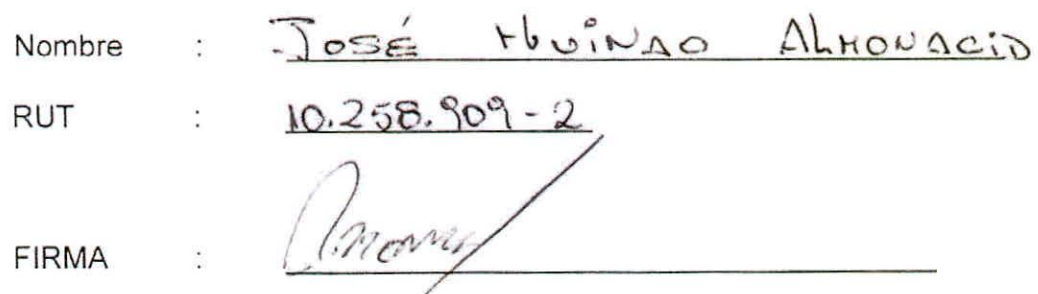 Nombre : José Huinao Almonacid
RUT : 10.258.909-2
FIRMA :